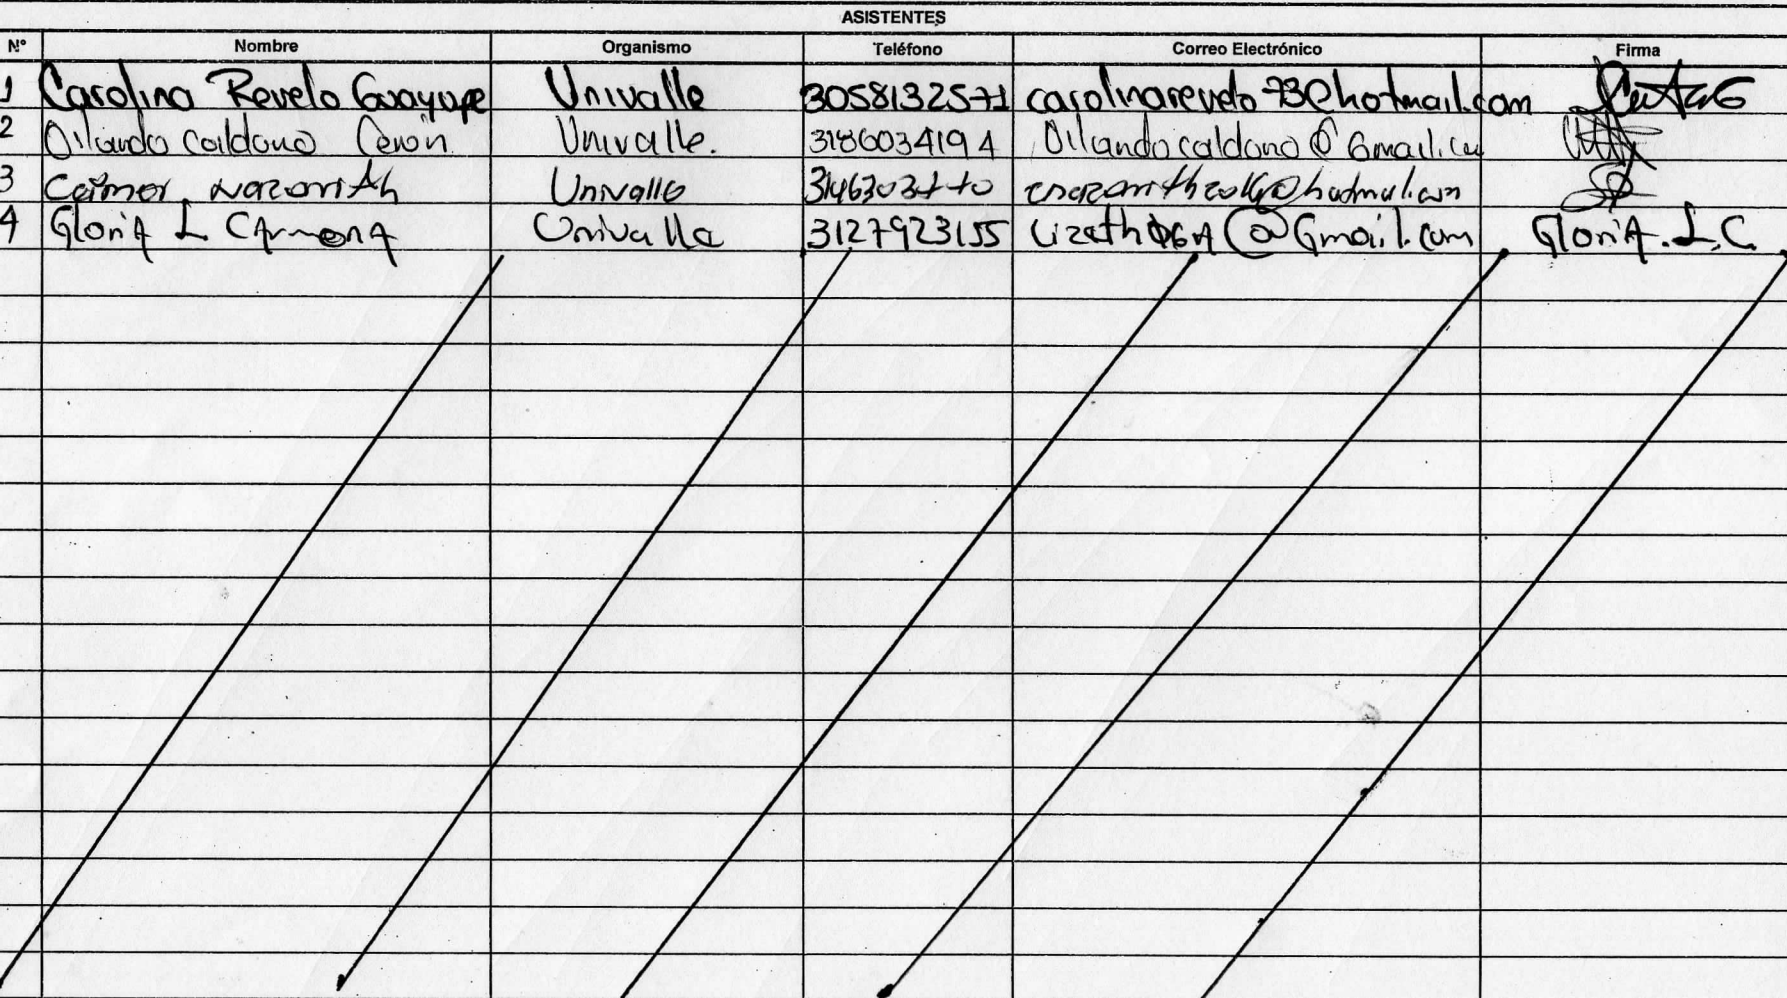 ASISTENTES
N° Nombre Organismo Teléfono Correo Electrónico Firma
1 Carolina Revelo Guayupe Univalle 3058132571 carolinarevelo73@hotmail.com
2 Orlando Caldono Cerón Univalle. 3186034194 Orlandocaldono@Gmail.
3 Univalle 3146303770
4 GloriA L CArmonA Univalle 3127923155 @Gmail.com GloriA.L.C.